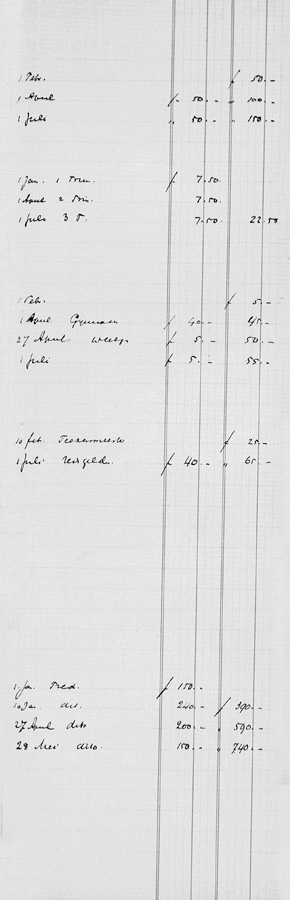 1 Febr. f 50.-
1 April f 50.- " 100.-
1 Juli " 50.- " 150.-
1 Jan. 1 Trim. f 7.50.
1 April 2 Trim. 7.50.
1 Juli 3 T. 7.50 22.50
1 Febr. f 5.-
1 April f 40.- 45.-
27 April f 5.- 50.-
1 Juli f 5.- 55.-
10 feb. f 25.-
1 Juli reisgeld. f 40.- " 65.-
1 Jan. f 150.-
10 Jan. dit. 240.- f 390.-
27 April dito 200.- " 590.-
28 Mei dito. 150.- " 740.-